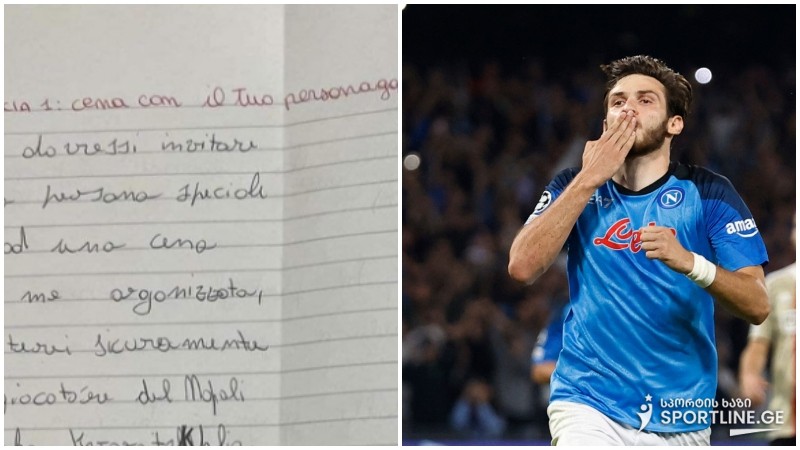 cia 1: cena con il tuo personagg
dovessi invitare
persona speciale
ad una cena
me organizzata,
terei sicuramente
giocatore del Napoli
N
amaz
სპორტის ხაზი
SPORTLINE.GE